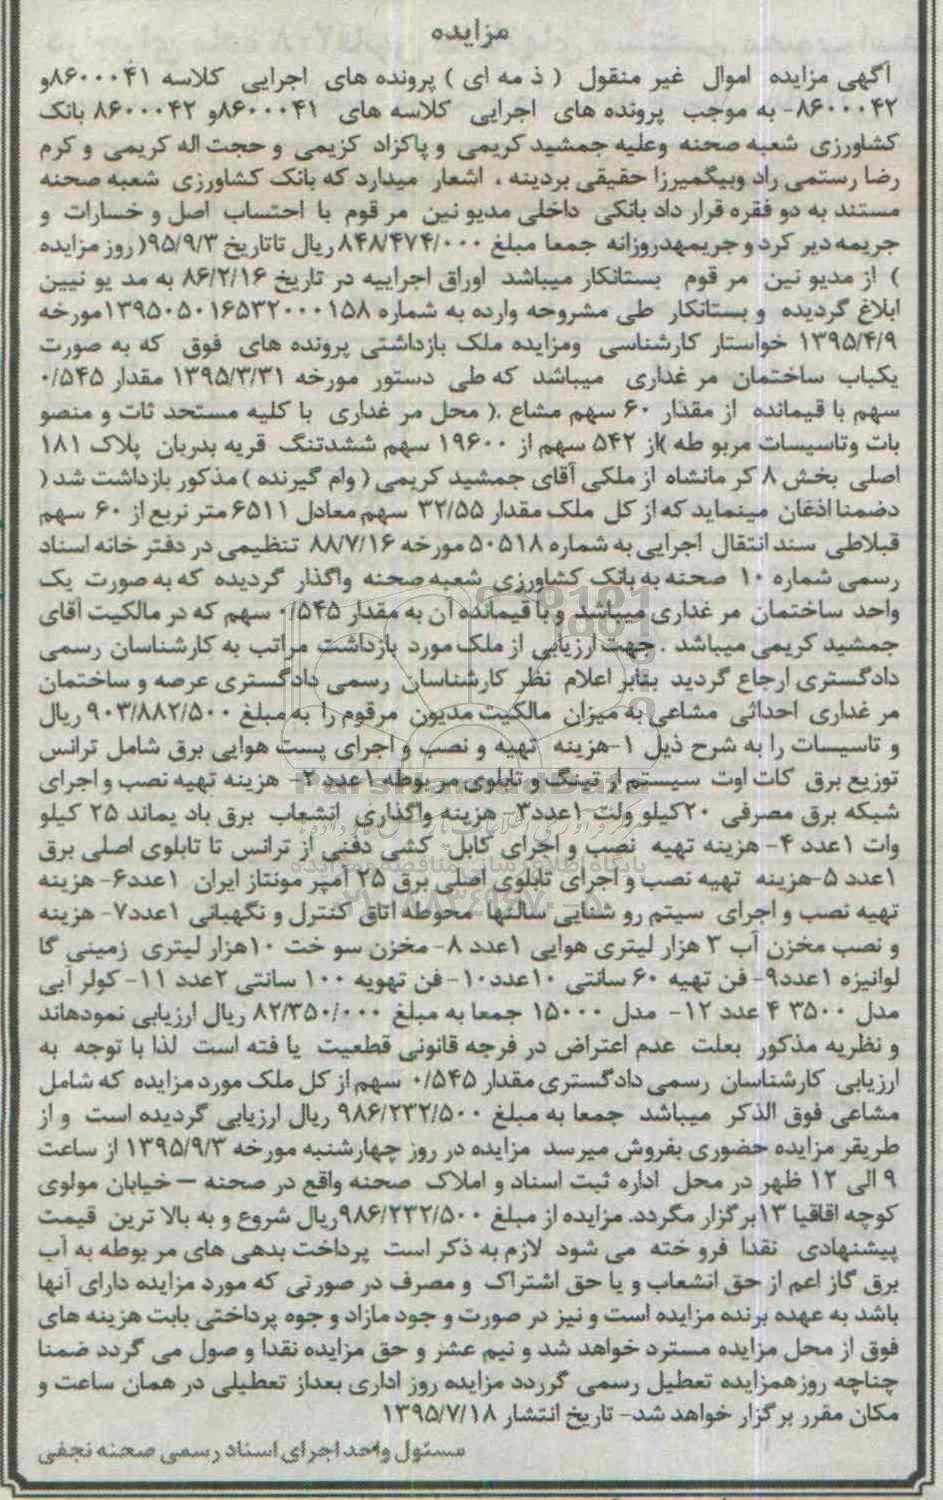 مزایده
آگهی مزایده اموال غیر منقول ( ذ مه ای ) پرونده های اجرایی کلاسه ۸۶۰۰۰۴۱و
۸۶۰۰۰۴۲- به موجب پرونده های اجرایی کلاسه های ۸۶۰۰۰۴۱و ۸۶۰۰۰۴۲ بانک
کشاورزی شعبه صحنه وعلیه جمشید کریمی و پاکزاد کریمی و حجت اله کریمی و کرم
رضا رستمی راد وبیگمیرزا حقیقی بردینه ، اشعار میدارد که بانک کشاورزی شعبه صحنه
مستند به دو فقره قرار داد بانکی داخلی مدیو نین مر قوم با احتساب اصل و خسارات و
جریمه دیر کرد و جریمهدروزانه جمعا مبلغ ۸۴۸/۴۷۴/۰۰۰ ریال تاتاریخ ۹۵/۹/۳( روز مزایده
) از مدیو نین مر قوم بستانکار میباشد اوراق اجراییه در تاریخ ۸۶/۲/۱۶ به مد یو نیین
ابلاغ گردیده و بستانکار طی مشروحه وارده به شماره ۱۳۹۵۰۵۰۱۶۵۳۲۰۰۰۱۵۸مورخه
۱۳۹۵/۴/۹ خواستار کارشناسی ومزایده ملک بازداشتی پرونده های فوق که به صورت
یکباب ساختمان مر غداری میباشد که طی دستور مورخه ۱۳۹۵/۳/۳۱ مقدار ۰/۵۴۵
سهم با قیمانده از مقدار ۶۰ سهم مشاع .( محل مر غداری با کلیه مستحد ثات و منصو
بات وتاسیسات مربو طه )از ۵۴۲ سهم از ۱۹۶۰۰ سهم ششدتنگ قریه بدربان پلاک ۱۸۱
اصلی بخش ۸ کر مانشاه از ملکی آقای جمشید کریمی ( وام گیرنده ) مذکور بازداشت شد (
دضمنا اذغان مینماید که از کل ملک مقدار ۳۲/۵۵ سهم معادل ۶۵۱۱ متر نربع از ۶۰ سهم
قبلاطی سند انتقال اجرایی به شماره ۵۰۵۱۸ مورخه ۸۸/۷/۱۶ تنظیمی در دفتر خانه اسناد
رسمی شماره ۱۰ صحنه به بانک کشاورزی شعبه صحنه واگذار گردیده که به صورت یک
واحد ساختمان مر غداری میباشد و با قیمانده آن به مقدار ۰/۵۴۵ سهم که در مالکیت آقای
جمشید کریمی میباشد . جهت ارزیابی از ملک مورد بازداشت مراتب به کارشناسان رسمی
دادگستری ارجاع گردید بقابر اعلام نظر کارشناسان رسمی دادگستری عرصه و ساختمان
مر غداری احداثی مشاعی به میزان مالکیت مدیون مرقوم را به مبلغ ۹۰۳/۸۸۲/۵۰۰ ریال
و تاسیسات را به شرح ذیل ۱-هزینه تهیه و نصب و اجرای پست هوایی برق شامل ترانس
توزیع برق کات اوت سیستم ار تینگ و تابلوی مر بوطه ۱عدد ۲- هزینه تهیه نصب و اجرای
شبکه برق مصرفی ۲۰کیلو ولت ۱عدد۳- هزینه واگذاری انشعاب برق باد یماند ۲۵ کیلو
وات ۱عدد ۴- هزینه تهیه نصب و اجرای کابل کشی دفنی از ترانس تا تابلوی اصلی برق
۱عدد ۵-هزینه تهیه نصب و اجرای تابلوی اصلی برق ۲۵ آمپر مونتاژ ایران ۱عدد۶- هزینه
تهیه نصب و اجرای سیتم رو شنایی سالنها محوطه اتاق کنترل و نگهبانی ۱عدد۷- هزینه
و نصب مخزن آب ۳ هزار لیتری هوایی ۱عدد ۸- مخزن سو خت ۱۰هزار لیتری زمینی گا
لوانیزه ۱عدد۹- فن تهیه ۶۰ سانتی ۱۰عدد۱۰- فن تهویه ۱۰۰ سانتی ۲عدد ۱۱- کولر آبی
مدل ۳۵۰۰ ۴ عدد ۱۲- مدل ۱۵۰۰۰ جمعا به مبلغ ۸۲/۳۵۰/۰۰۰ ریال ارزیابی نمودهاند
و نظریه مذکور بعلت عدم اعتراض در فرجه قانونی قطعیت یا فته است لذا با توجه به
ارزیابی کارشناسان رسمی دادگستری مقدار ۰/۵۴۵ سهم از کل ملک مورد مزایده که شامل
مشاعی فوق الذکر میباشد جمعا به مبلغ ۹۸۶/۲۳۲/۵۰۰ ریال ارزیابی گردیده است و از
طریقر مزایده حضوری بفروش میرسد مزایده در روز چهارشنبه مورخه ۱۳۹۵/۹/۳ از ساعت
۹ الی ۱۲ ظهر در محل اداره ثبت اسناد و املاک صحنه واقع در صحنه – خیابان مولوی
کوچه اقاقیا ۱۳بر گزار مگردد. مزایده از مبلغ ۹۸۶/۲۳۲/۵۰۰ریال شروع و به بالا ترین قیمت
پیشنهادی نقدا فرو خته می شود لازم به ذکر است پرداخت بدهی های مر بوطه به آب
برق گاز اعم از حق انشعاب و یا حق اشتراک و مصرف در صورتی که مورد مزایده دارای آنها
باشد به عهده برنده مزایده است و نیز در صورت و جود مازاد و جوه پرداختی بابت هزینه های
فوق از محل مزایده مسترد خواهد شد و نیم عشر و حق مزایده نقدا و صول می گردد ضمنا
چناچه روزهمزایده تعطیل رسمی گرردد مزایده روز اداری بعداز تعطیلی در همان ساعت و
مکان مقرر بر گزار خواهد شد- تاریخ انتشار ۱۳۹۵/۷/۱۸
مسئول واحد اجرای اسناد رسمی صحنه نجفی